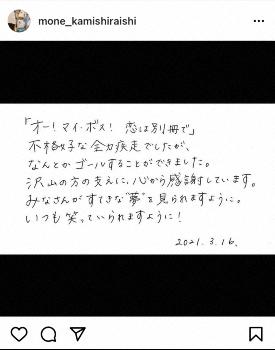 mone_kamishiraishi
「オー！マイ・ボス！ 恋は別冊で」
不格好な全力疾走でしたが、
なんとかゴールすることができました。
沢山の方の支えに、心から感謝しています。
みなさんがすてきな"夢"を見られますように。
いつも笑っていられますように！
2021.3.16.